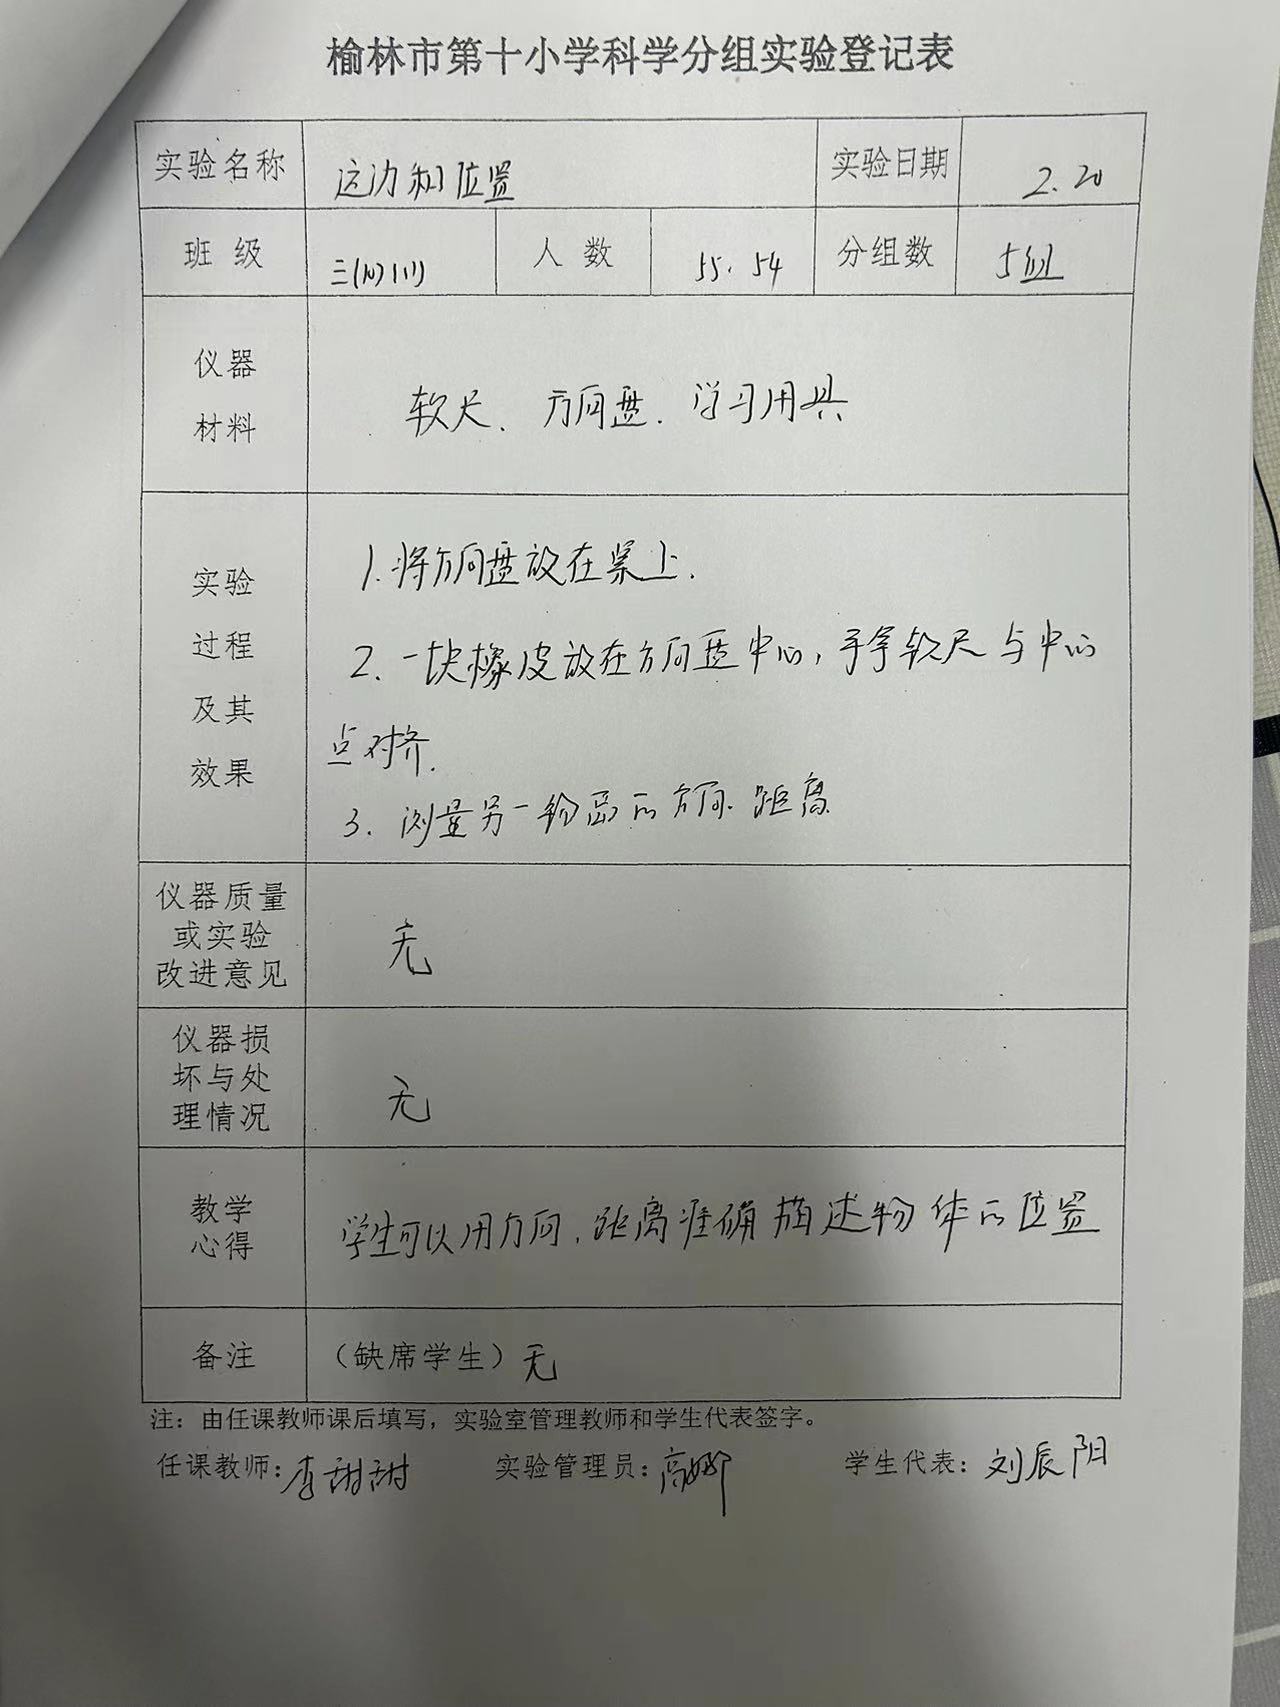 榆林市第十小学科学分组实验登记表
实验名称 运动和位置 实验日期 2.20
班 级 三(10)(11) 人 数 55. 54 分组数 5组
仪器
材料
软尺、方向盘、学习用具
实验
过程
及其
效果
1.将方向盘放在桌上.
2.一块橡皮放在方向盘中心,手拿软尺与中心
点对齐.
3.测量另一物品的方向、距离
仪器质量
或实验
改进意见
无
仪器损
坏与处
理情况
无
教学
心得
学生可以用方向、距离准确描述物体的位置
备注 (缺席学生)无
注:由任课教师课后填写,实验室管理教师和学生代表签字。
任课教师:李甜甜 实验管理员:高娜 学生代表:刘辰阳